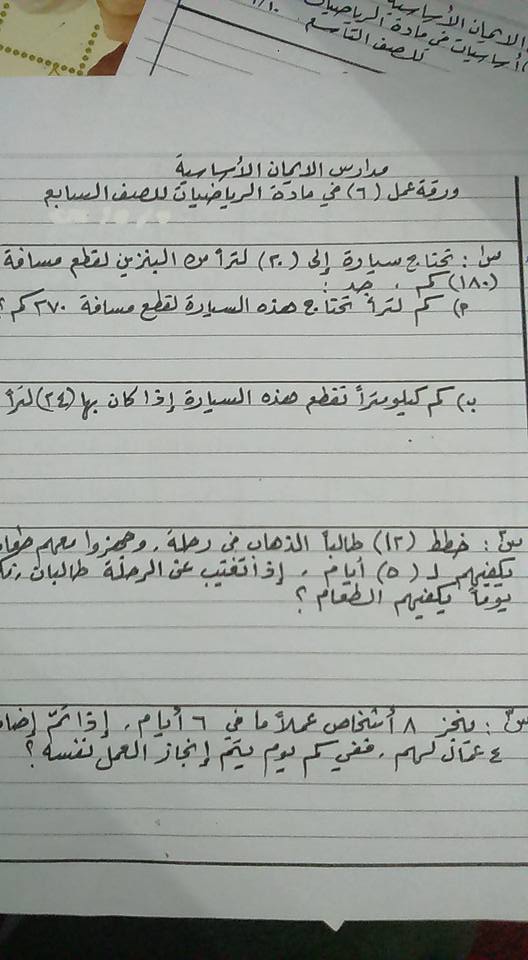 الايمان الأساسية
أساسيات في مادة الرياضيات
للصف التاسع
مدارس الايمان الأساسية
ورقة عمل (٦) في مادة الرياضيات للصف السابع
س١: تحتاج سيارة إلى (٢٠) لتراً من البنزين لقطع مسافة
(١٨٠) كم . جد :
أ) كم لتراً تحتاج هذه السيارة لقطع مسافة ٢٧٠ كم؟
ب) كم كيلومتراً تقطع هذه السيارة إذا كان بها (٢٤) لتراً
س٢: خطط (١٢) طالباً الذهاب في رحلة، وجهزوا معهم طعام
يكفيهم لـ (٥) أيام ، إذا تغيّب عن الرحلة طالبان،
يوماً يكفيهم الطعام ؟
س٣: ينجز ٨ أشخاص عملاً ما في ٦ أيام، إذا تمّ
٤ عمّال لهم ، ففي كم يوم يتمّ إنجاز العمل نفسه ؟